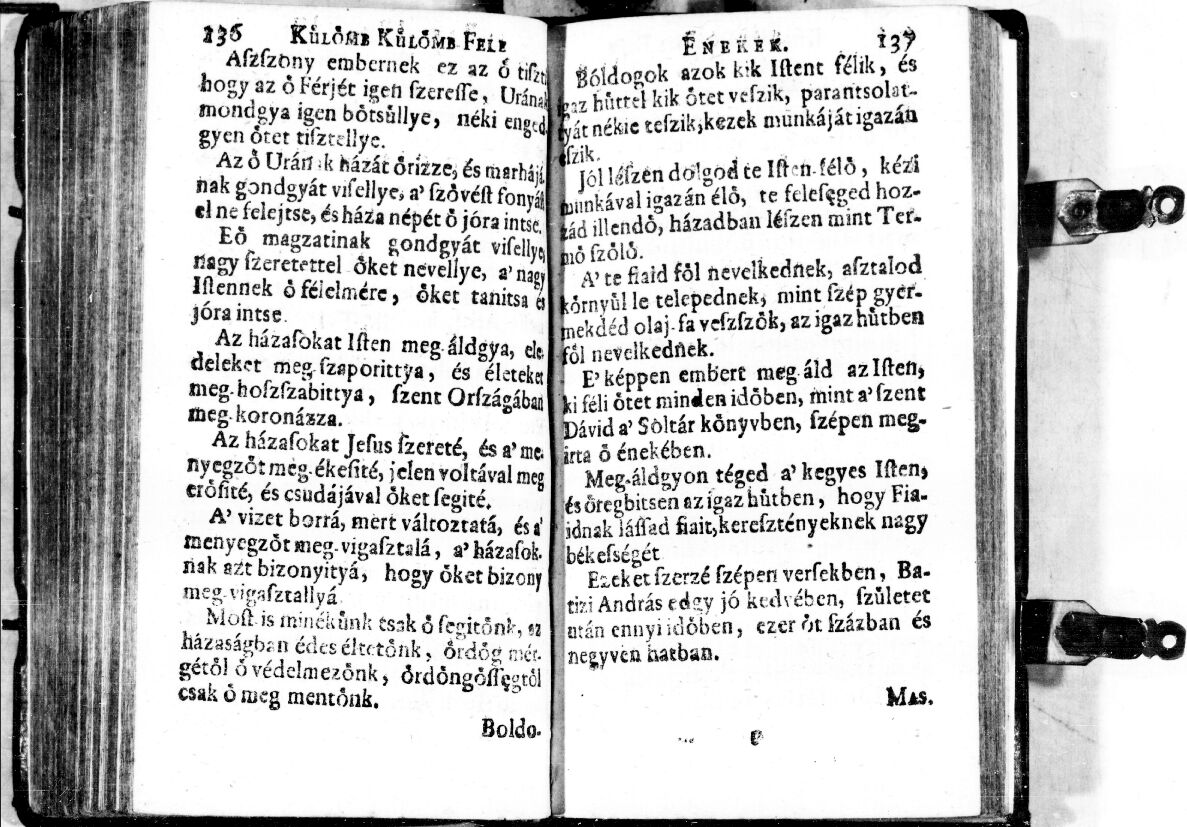 136 Kůlőmb Kůlőmb Fele
Aſzſzony embernek ez az ő tiſzti
hogy az ő Férjét igen ſzereſſe, Urának
mondgya igen bötsůllye, néki enged-
gyen őtet tiſztellye.
Az ő Urának házát őrizze, és marhájá-
nak gondgyát viſellye, a' ſzővéſt fonyáſt
el ne felejtse, és háza népét ő jóra intse.
Eő magzatinak gondgyát viſellye,
nagy ſzeretettel őket nevellye, a' nagy
Iſtennek ő félelmére, őket tanitsa és
jóra intse.
Az házaſokat Iſten meg-áldgya, ele-
deleket meg-ſzaporittya, és életeket
meg-hoſzſzabittya, ſzent Orſzágában
meg-koronázza.
Az házaſokat Jeſus ſzereté, és a' me-
nyegzőt meg-ékeſité, jelen voltával meg
erőſité, és csudájával őket ſegité.
A' vizet borrá, mert változtatá, és a'
menyegzőt meg-vigaſztalá, a' házaſok-
nak azt bizonyityá, hogy őket bizony
meg-vigaſztallyá
Moſt is minékůnk csak ő ſegitőnk, az
házaságban édes éltetőnk, őrdőg mér-
gétől ő védelmezőnk, őrdőngőſſęgtől
csak ő meg mentőnk.
Boldo-
Énekek. 137
Bóldogok azok kik Iſtent félik, és
igaz hůttel kik őtet veſzik, parantsolat-
tyát nékie teſzik, kezek munkáját igazán
eſzik.
Jól léſzen dolgod te Iſten-félő, kézi
munkával igazán élő, te feleſęged hoz-
zád illendő, házadban léſzen mint Ter-
mő ſzőlő.
A' te fiaid fől nevelkednek, aſztalod
kőrnyůl le telepednek, mint ſzép gyer-
mekdéd olaj-fa veſzſzők, az igaz hůtben
fől nevelkednek.
E' képpen embert meg-áld az Iſten,
ki féli őtet minden időben, mint a' ſzent
Dávid a' Sóltár kőnyvben, ſzépen meg-
irta ő énekében.
Meg-áldgyon téged a' kegyes Iſten,
és őregbitsen az igaz hůtben, hogy Fia-
idnak láſſad fiait, kereſztényeknek nagy
békeſségét
Ezeket ſzerzé ſzépen verſekben, Ba-
tizi András edgy jó kedvében, ſzůletet
után ennyi időben, ezer őt ſzázban és
negyven hatban.
Mas.